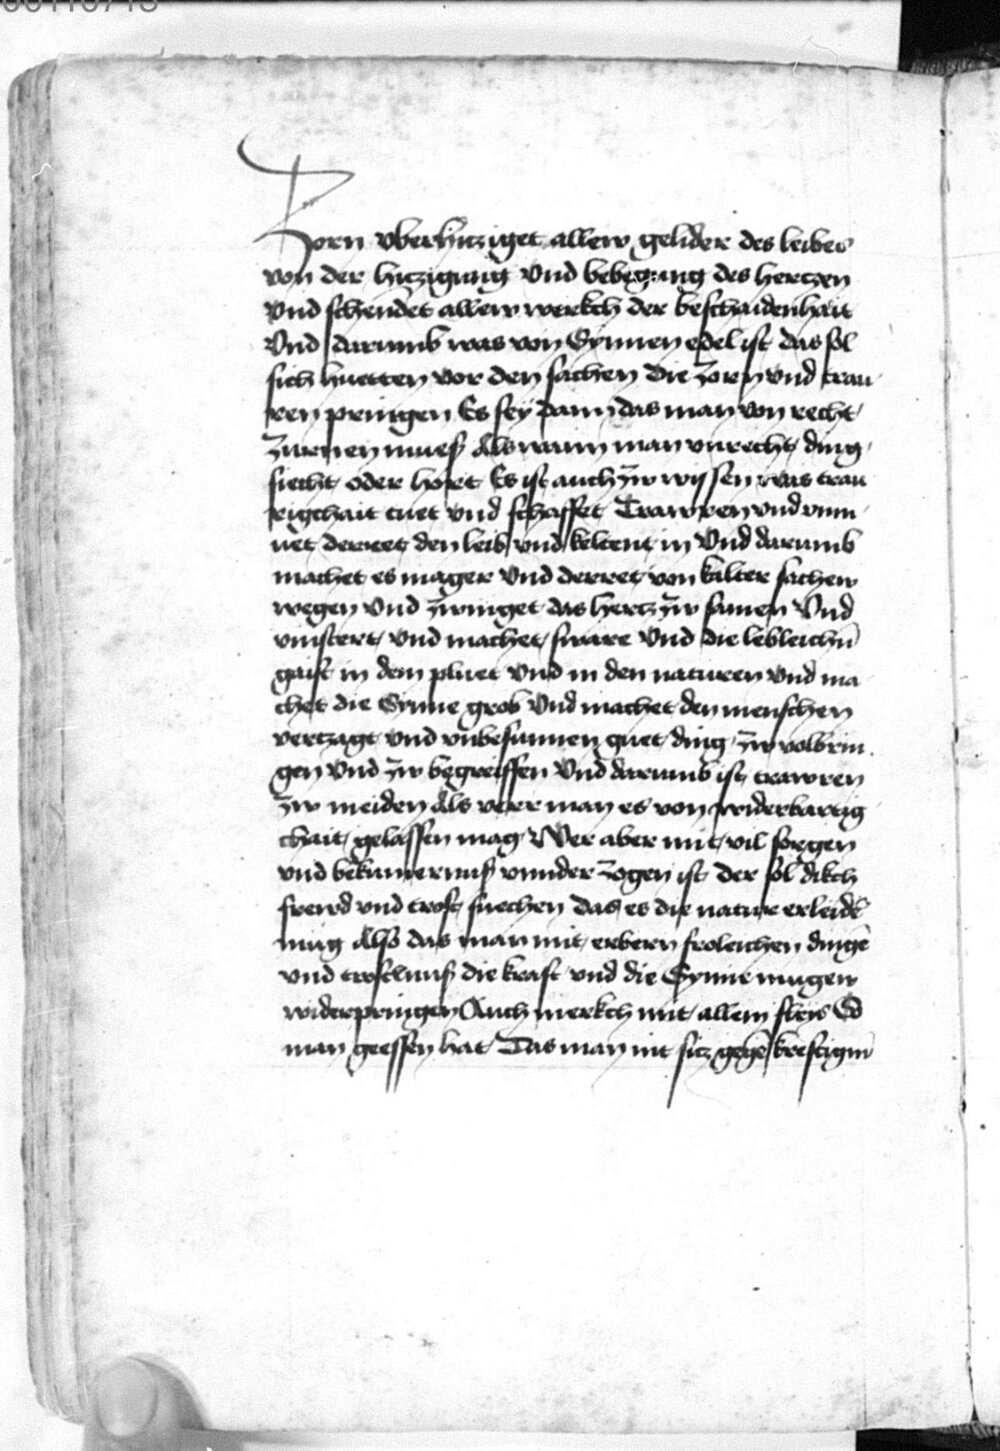 Zorn vberhicziget allew gelider des leibes
von der hiczigung vnd bebegung des hertzen
Vnd schendet allew werkch der beschaidenhait
Vnd darumb was von Synnen edel ist das sol
sich huetten vor den sachen die zorn vnd trau
ren pringen Es sey dann das man von recht
zurnen mues Als wann man vnrecht ding
siecht oder horet Es ist auch zw wissen was trau
rigchait tuet vnd schaffet Trawren vnd vnm
uet derret den leib vnd keltent in Vnd darumb
machet es mager Vnd derret von kalter sachen
wegen Vnd zwinget das hertz zw samen Vnd
vinstert Vnd machet sware Vnd die lebleichn̄
gaist in dem pluet Vnd in den naturen Vnd ma
chet die Synne grob Vnd machet den menschen
vertzagt vnd vnbesunnen guet ding zw volbrin
gen Vnd zw begreiffen Vnd darumb ist trawren
zw meiden Als verr man es von widerbartig
chait gelassen mag Wer aber mit vil sorgen
vnd bekumernuß vmder zogen ist der sol dikch
frewd vnd trost suechen das es die nature erleidē
mug Also das man mit erbern froleichen dingē
vnd trostnuß die kraft vnd die Synne mugen
widerpringen Auch merkch mit allem fleis So
man geessen hat Das man nit sicz gegē kreftigm̄